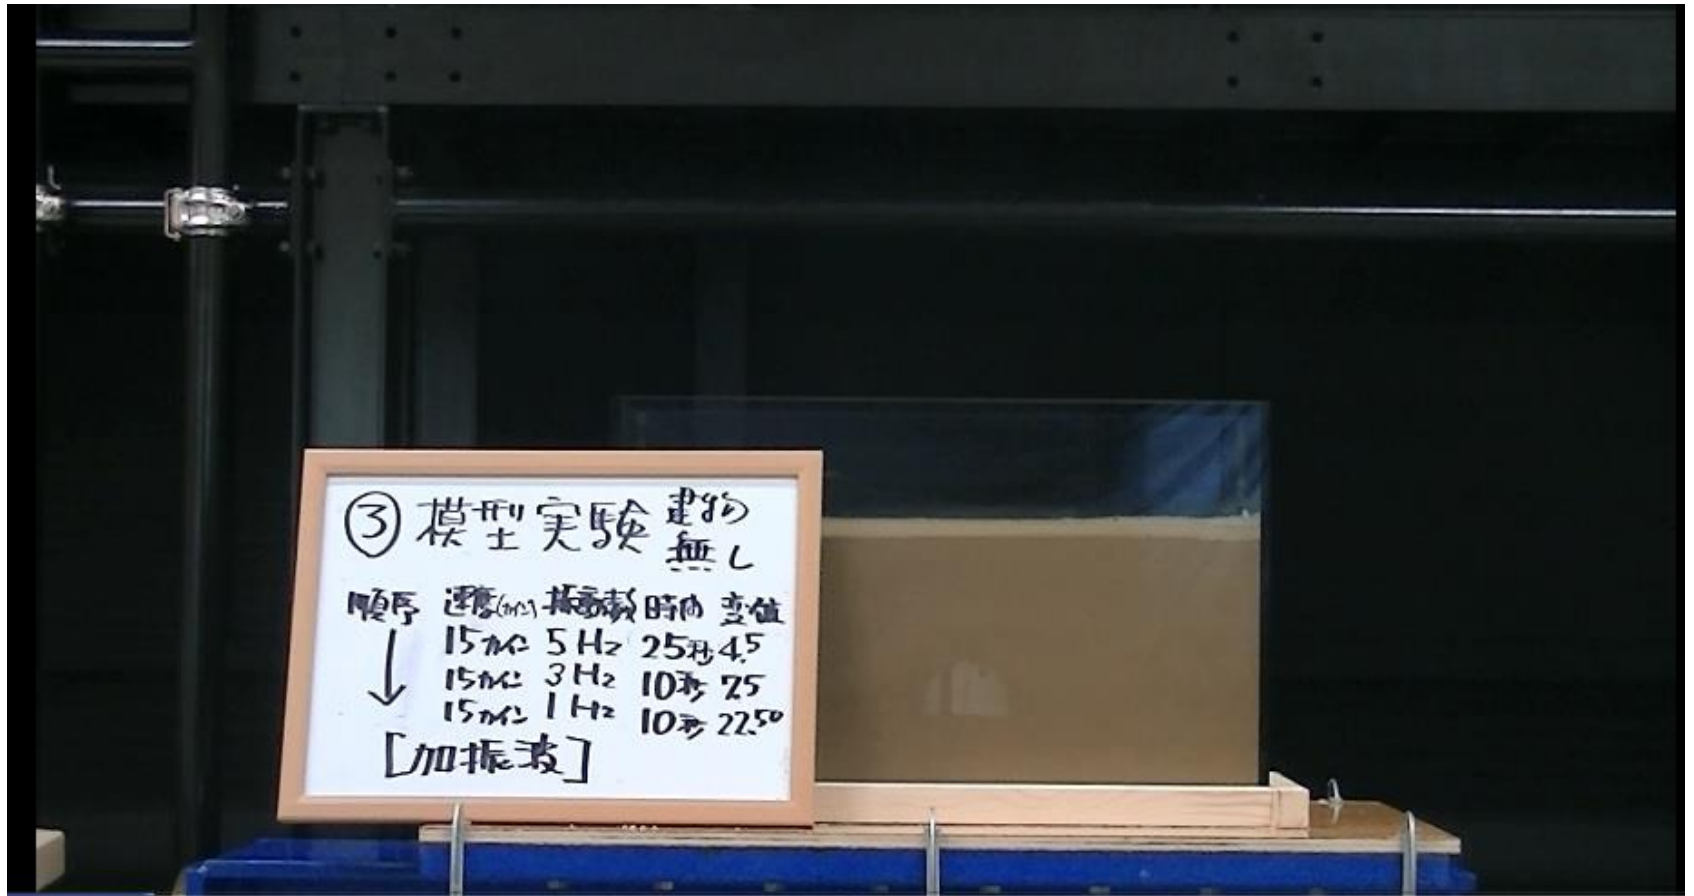 ③ 模型実験 建物
無し
順序 速度(カイン) 振動数 時間 変位
15カイン 5Hz 25秒 4.5
15カイン 3Hz 10秒 7.5
15カイン 1Hz 10秒 22.50
[加振波]